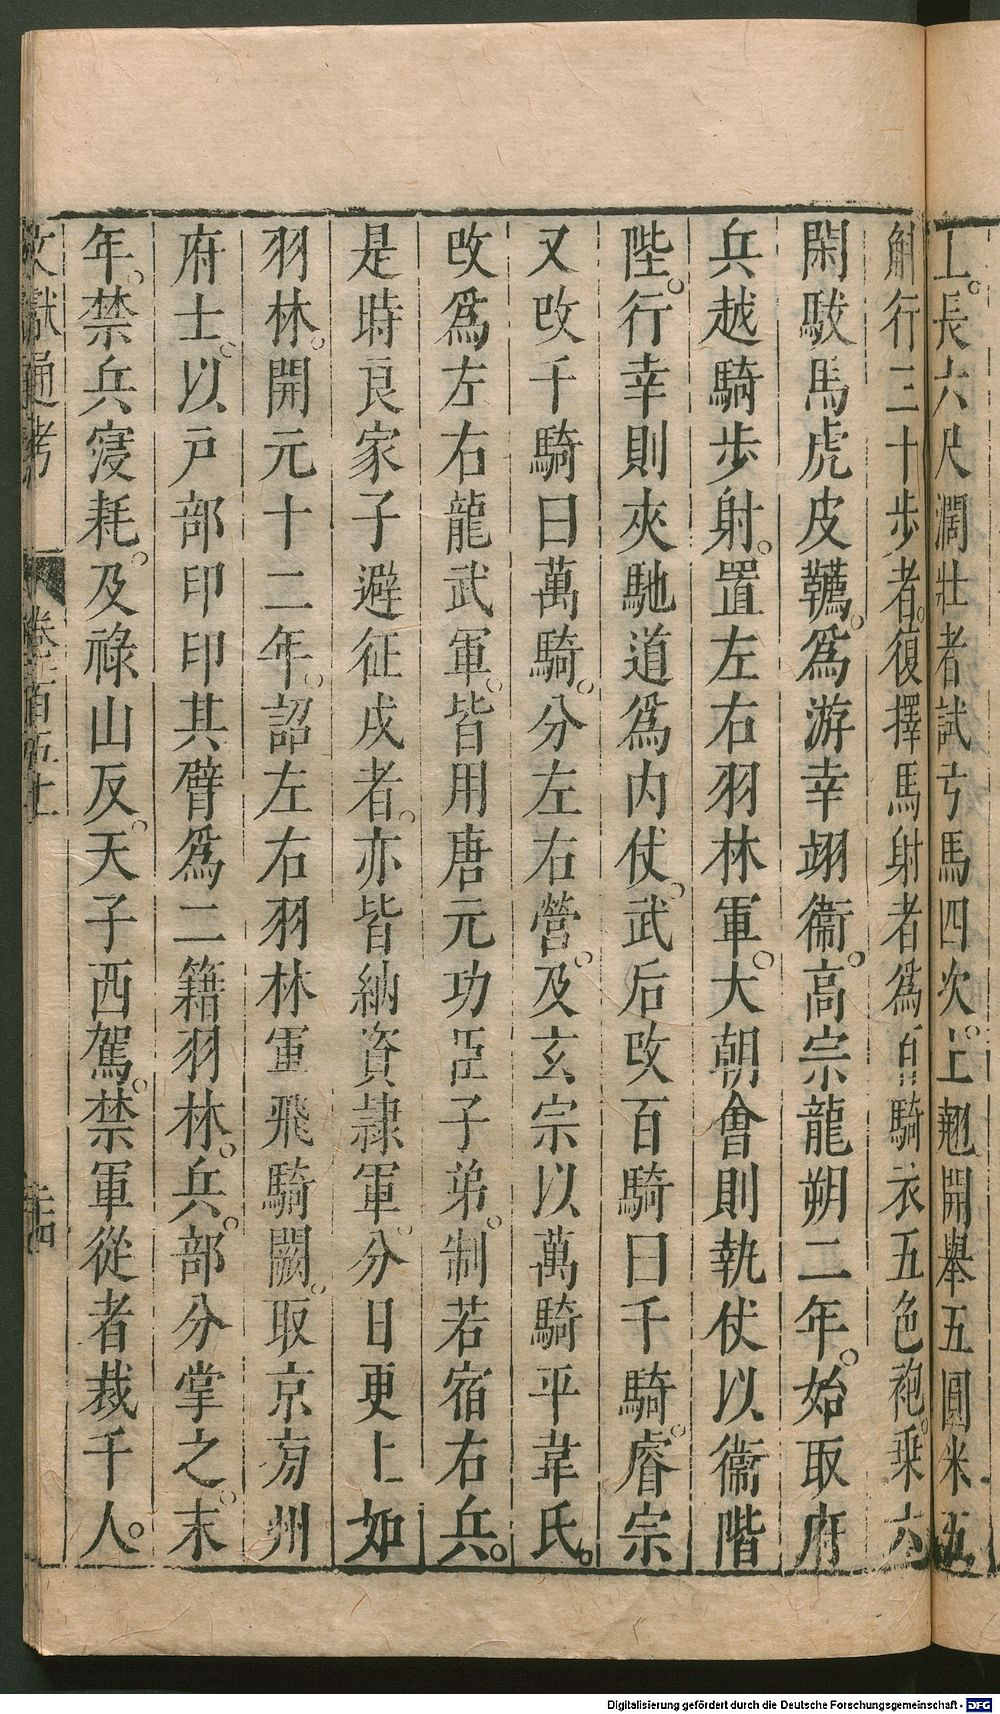 上長六尺濶壯者試弓馬四次上翹開舉五圓米五
斛行三十步者復擇馬射者爲百騎衣五色袍乘六
閑駁馬虎皮韉爲游幸翊衞高宗龍朔二年始取府
兵越騎步射置左右羽林軍大朝會則執仗以衞階
陛行幸則夾馳道爲内仗武后改百騎曰千騎睿宗
又改千騎曰萬騎分左右營及玄宗以萬騎平韋氏
改爲左右龍武軍皆用唐元功臣子弟制若宿右兵
是時良家子避征戍者亦皆納資隷軍分日更上如
羽林開元十二年詔左右羽林軍飛騎闕取京旁州
府士以戶部印印其臂爲二籍羽林兵部分掌之末
年禁兵寖耗及祿山反天子西駕禁軍從者裁千人
文獻通考 卷一百五十一
Digitalisierung gefördert durch die Deutsche Forschungsgemeinschaft - DFG